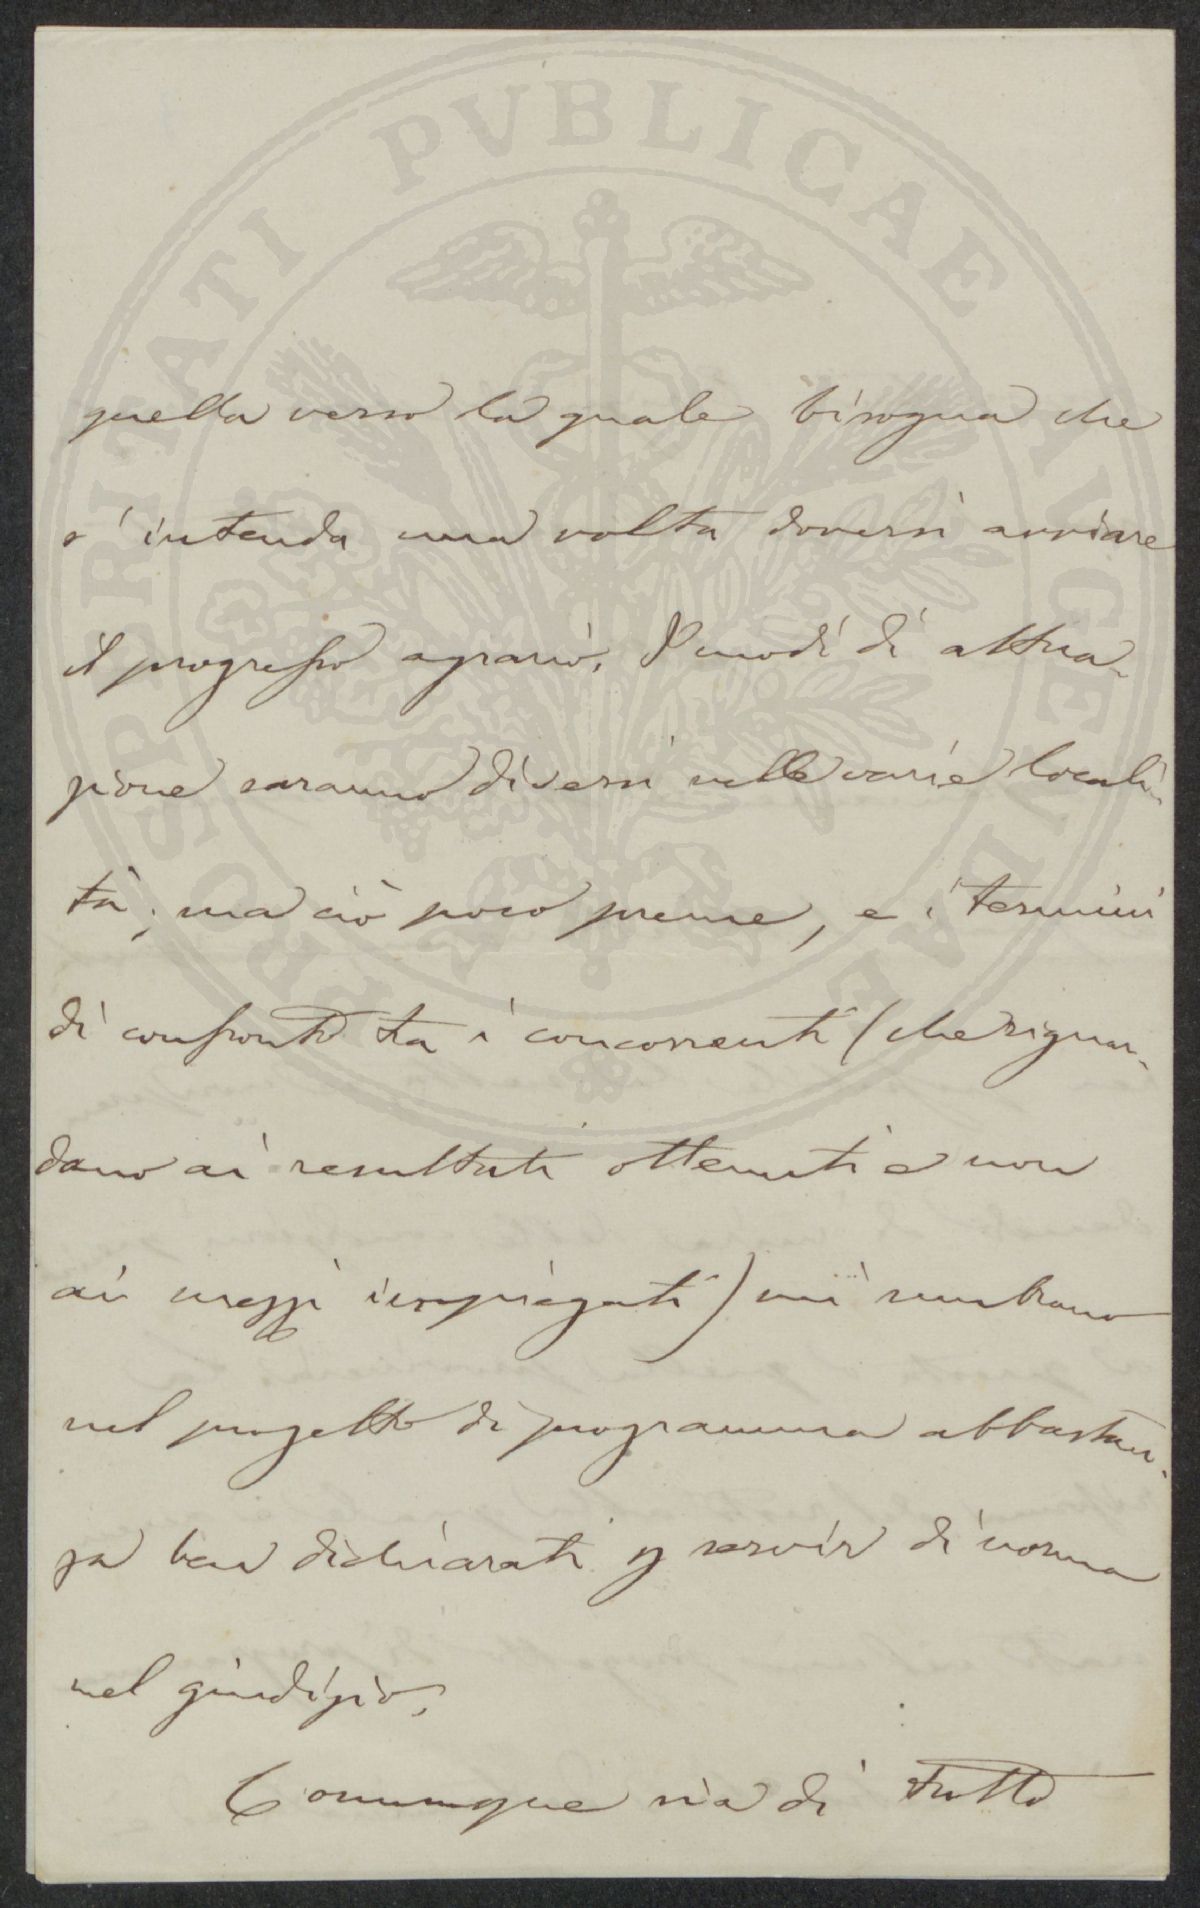 quella verso la quale bisogna che
s'intenda una volta doversi avviare
il progresso agrario. I modi di attua-
zione saranno diversi nelle varie locali-
tà; ma ciò poco preme, e i termini
di confronto tra i concorrenti (che riguar-
dano ai resultati ottenuti e non
ai mezzi impiegati) mi sembrano
nel progetto di programma abbastan-
za ben dichiarati p servir di norma
nel giudizio.
Comunque sia di tutto
PROSPERITATI PVBLICAE AVGENDAE